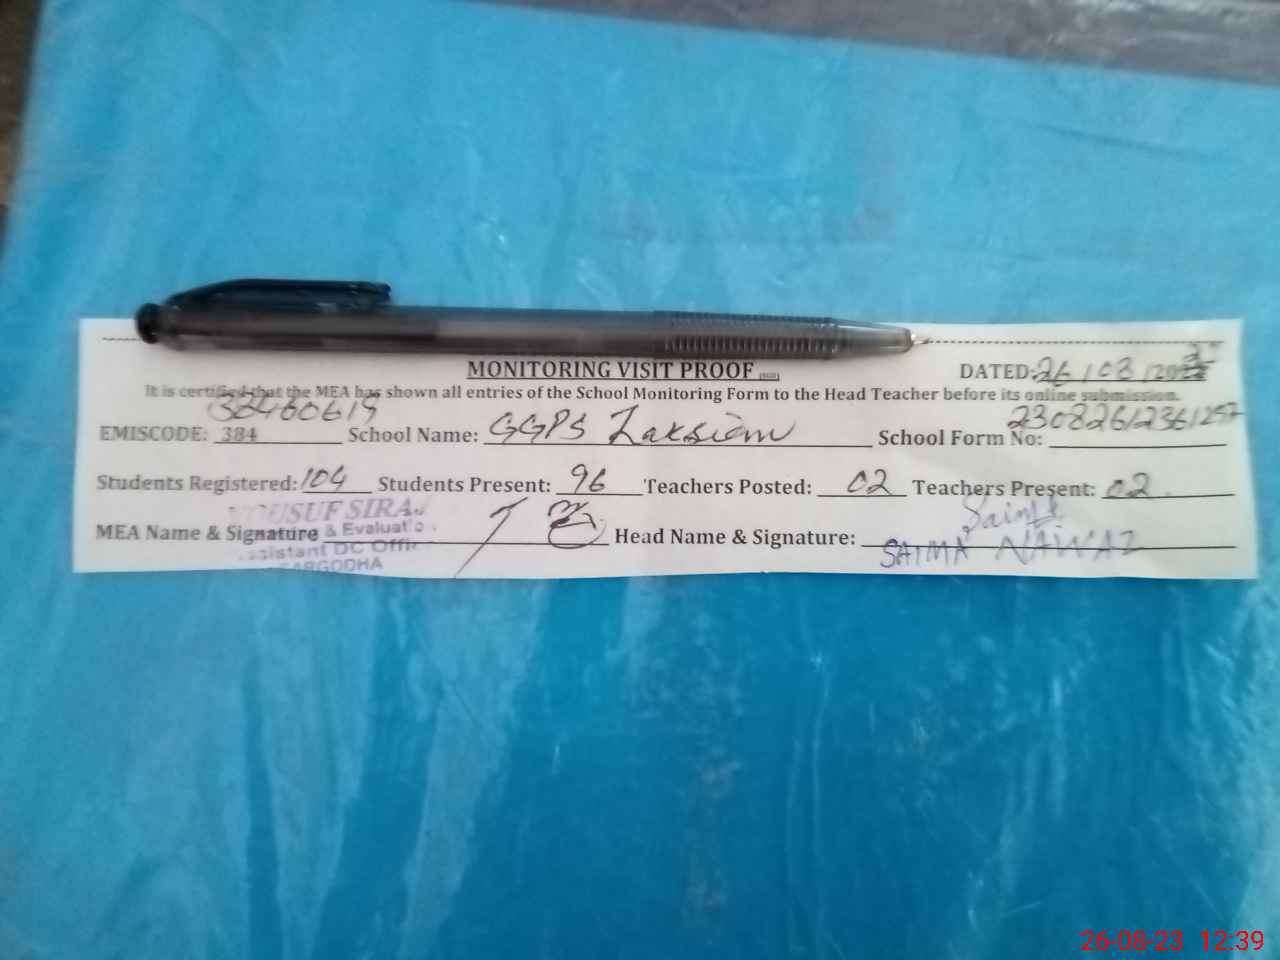 MONITORING VISIT PROOF
DATED: 26/08/20
It is certified that the MEA has shown all entries of the School Monitoring Form to the Head Teacher before its online submission.
38460619
EMISCODE: 384 School Name: GGPS Laksien School Form No: 23082612361257
Students Registered: 104 Students Present: 96 Teachers Posted: 02 Teachers Present: 02
YOUSUF SIRAJ
MEA Name & Signature & Evaluatio Head Name & Signature: Saima
ssistant DC Offic SAIMA NAWAZ
SARGODHA
26-08-23 12:39